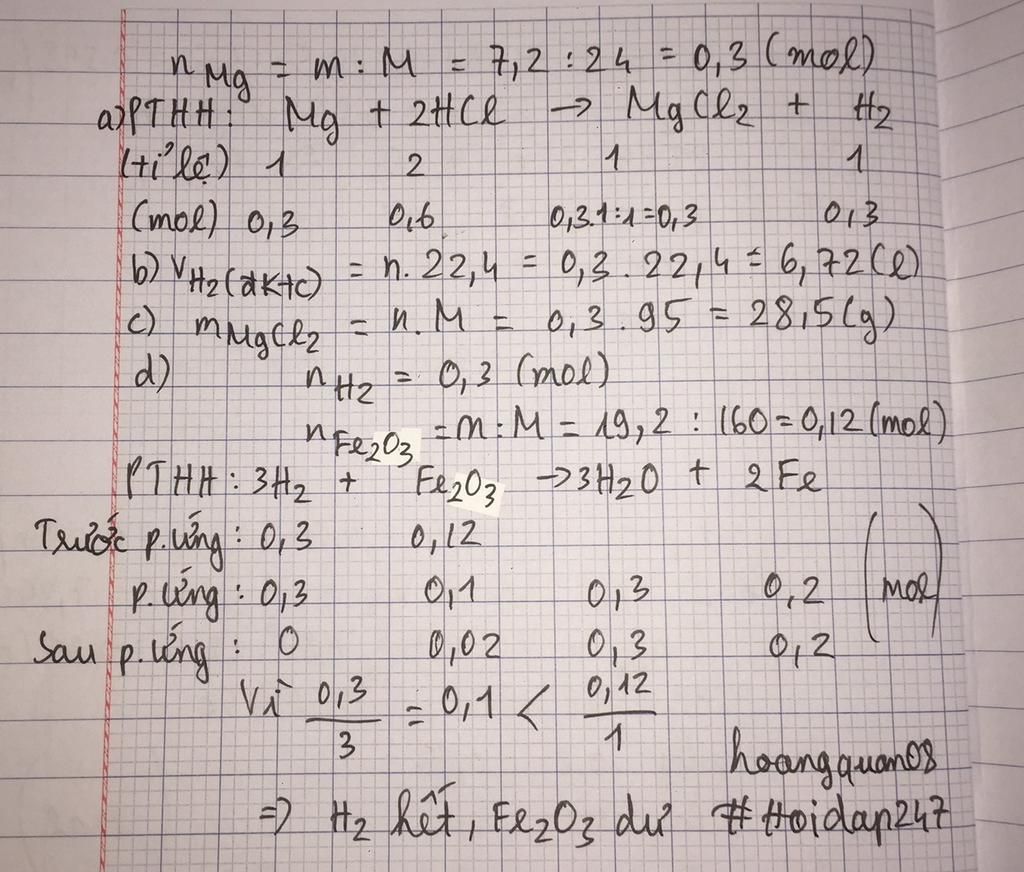 nMg = m : M = 7,2 : 24 = 0,3 (mol)
a) PTHH: Mg + 2HCl → MgCl2 + H2
(tỉ lệ) 1 2 1 1
(mol) 0,3 0,6 0,3.1:1=0,3 0,3
b) VH2(đktc) = n. 22,4 = 0,3 . 22,4 = 6,72 (l)
c) mMgCl2 = n. M = 0,3 . 95 = 28,5 (g)
d) nH2 = 0,3 (mol)
nFe2O3 = m : M = 19,2 : 160 = 0,12 (mol)
PTHH : 3H2 + Fe2O3 → 3H2O + 2Fe
Trước p.ứng : 0,3 0,12
p.ứng : 0,3 0,1 0,3 0,2 (mol)
Sau p.ứng : 0 0,02 0,3 0,2
Vì 0,3/3 = 0,1 < 0,12/1
hoangquan08
=> H2 hết, Fe2O3 dư # Hoidap247